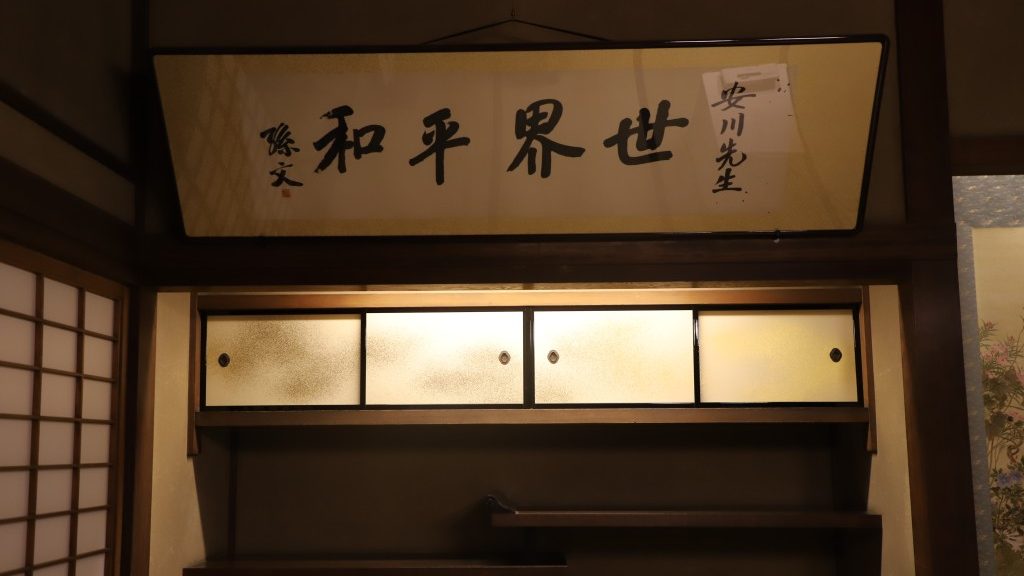 安川先生
世界平和
孫文